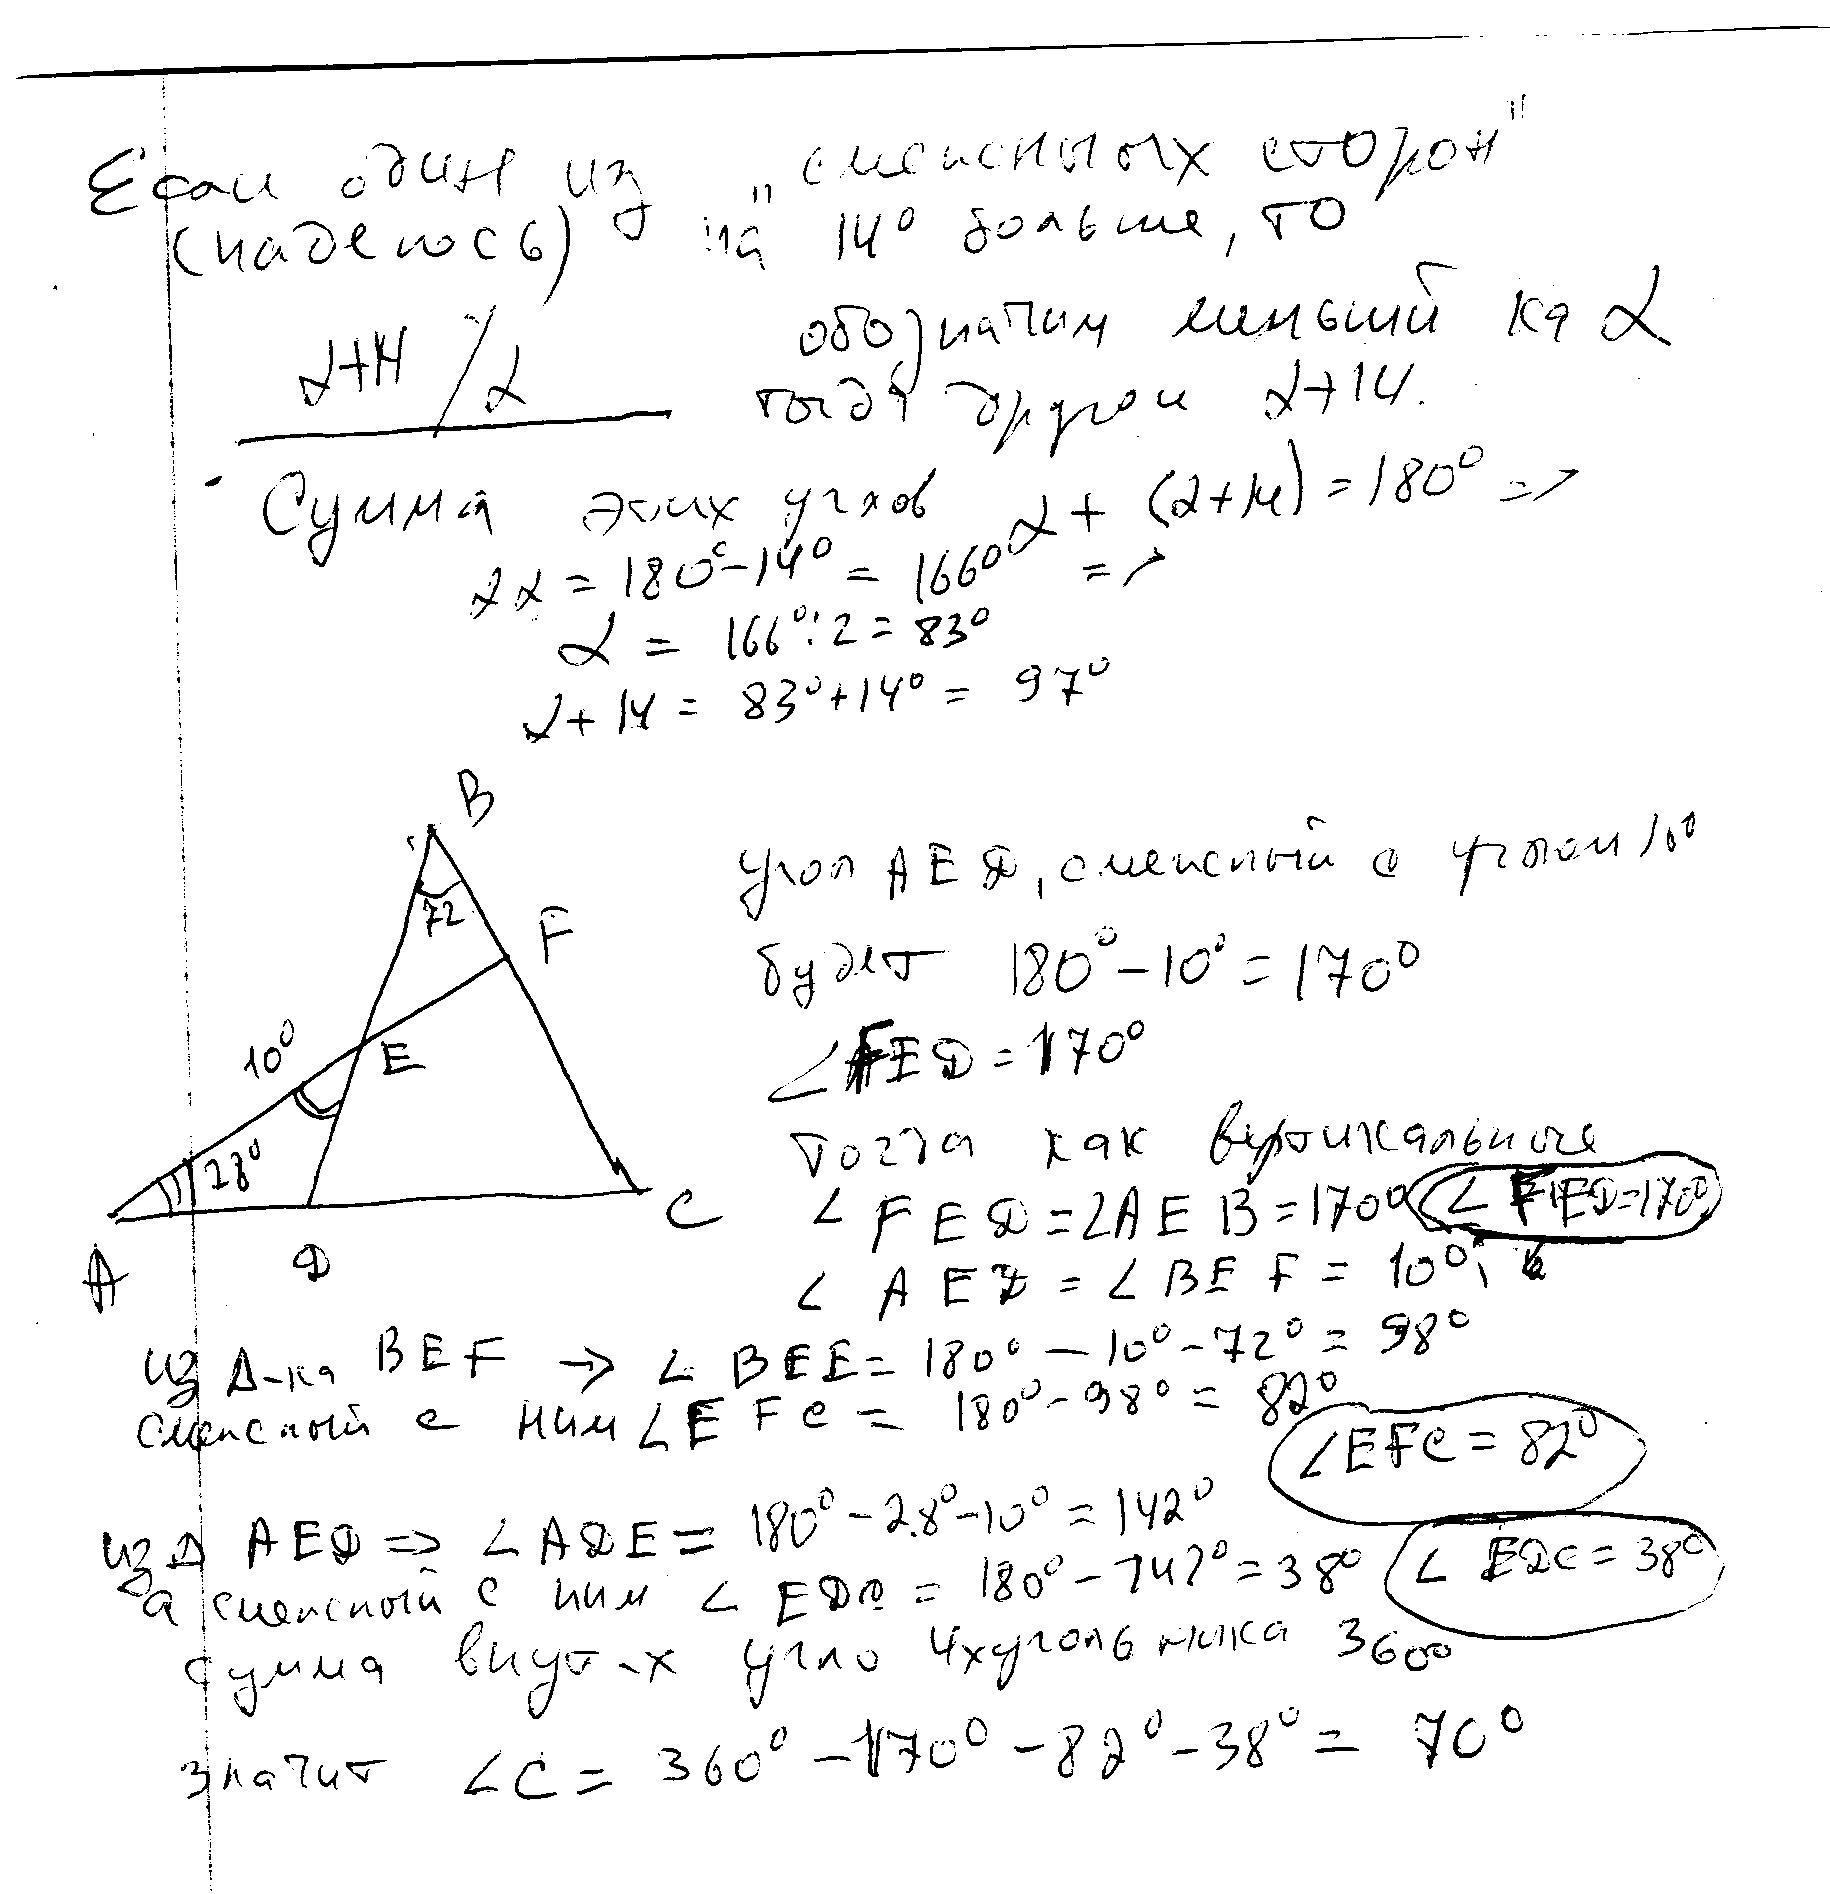 Если один из "смежных сторон"
(надеюсь) на 14° больше, то
α+14 / α
обозначим меньший ка α
тогда другой α+14.
Сумма этих углов α + (α+14) = 180° =>
2α = 180° - 14° = 166° =>
α = 166° : 2 = 83°
α + 14 = 83° + 14° = 97°
B
72
F
10°
E
28°
A
D
C
угол AED, смежный с углом 10°
будет 180° - 10° = 170°
∠FED = 170°
тогда как вертикальные
∠FED = ∠AEB = 170° ∠FED = 170°
∠AED = ∠BEF = 10°;
из Δ-ка BEF → ∠BEE = 180° - 10° - 72° = 98°
смежный с ним ∠EFC = 180° - 98° = 82°
∠EFC = 82°
из Δ AED => ∠ADE = 180° - 28° - 10° = 142°
а смежный с ним ∠EDC = 180° - 142° = 38°
∠EDC = 38°
сумма внут-х угло 4хугольника 360°
значит ∠C = 360° - 170° - 82° - 38° = 70°